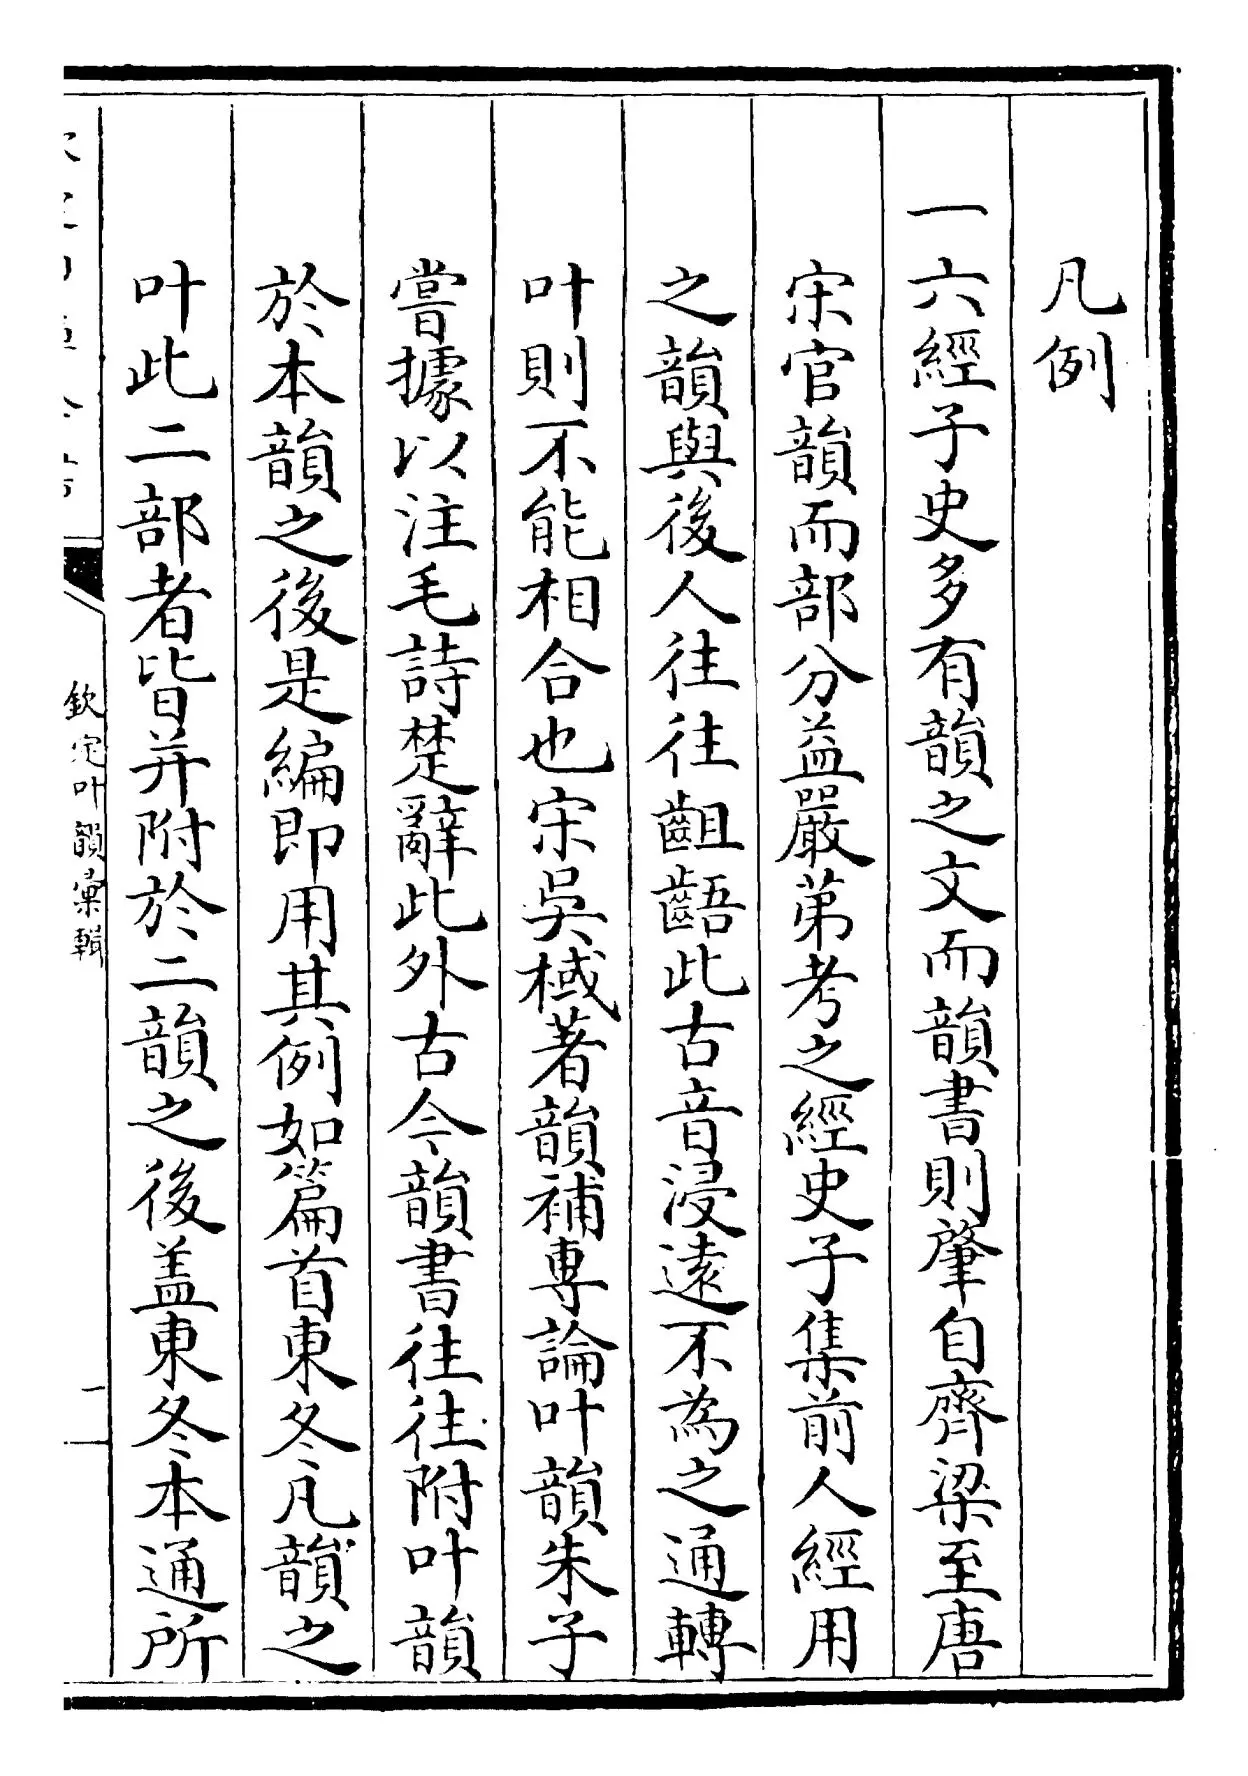 凡例
一六經子史多有韻之文而韻書則肇自齊梁至唐
宋官韻而部分益嚴第考之經史子集前人經用
之韻與後人往往齟齬此古音浸遠不為之通轉
叶則不能相合也宋吳棫著韻補專論叶韻朱子
嘗據以注毛詩楚辭此外古今韻書往往附叶韻
於本韻之後是編即用其例如篇首東冬凡韻之
叶此二部者皆并附於二韻之後盖東冬本通所
欽定叶韻彙輯
一